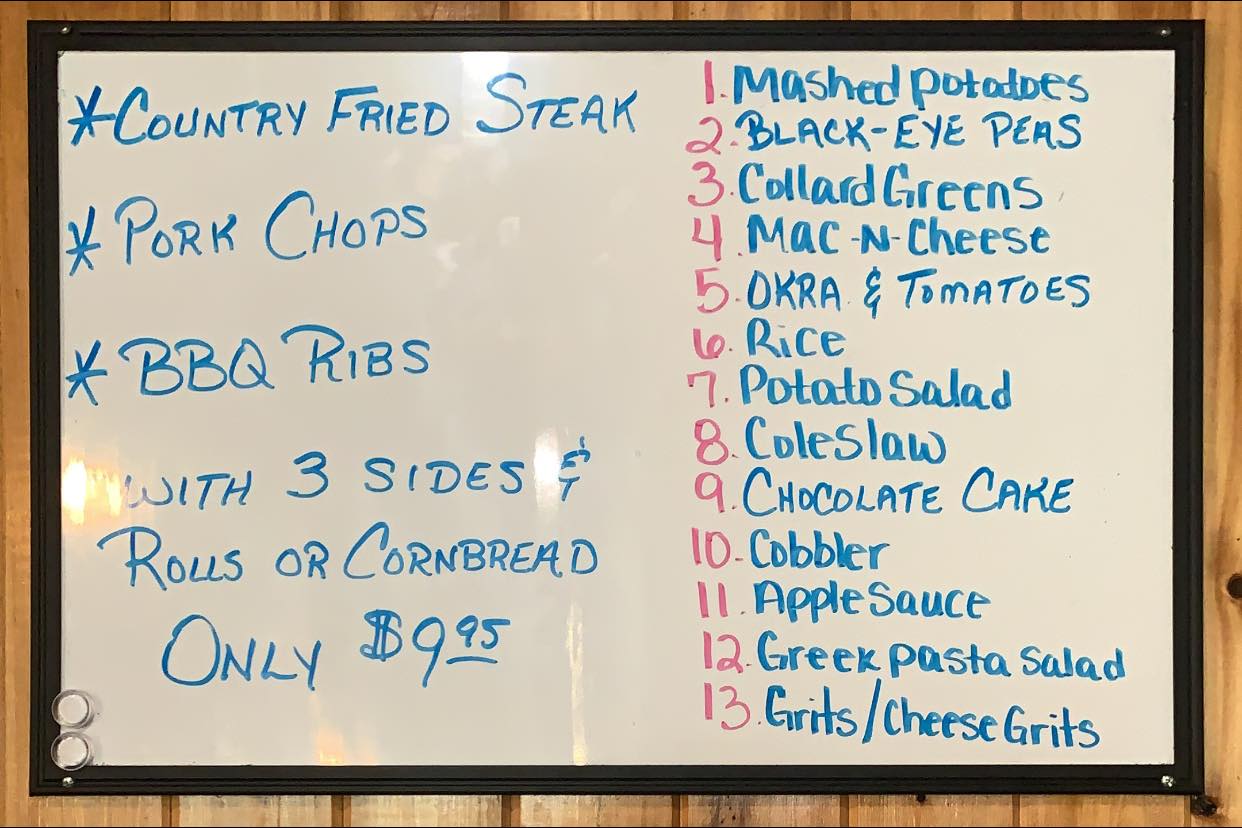 *COUNTRY FRIED STEAK
* PORK CHOPS
* BBQ RIBS
WITH 3 SIDES &
ROLLS OR CORNBREAD
ONLY $9.95
1. Mashed potatoes
2. BLACK-EYE PEAS
3. Collard Greens
4. Mac-N-Cheese
5. OKRA & TOMATOES
6. Rice
7. Potato Salad
8. Coleslaw
9. CHOCOLATE CAKE
10. Cobbler
11. Apple Sauce
12. Greek pasta salad
13. Grits/Cheese Grits